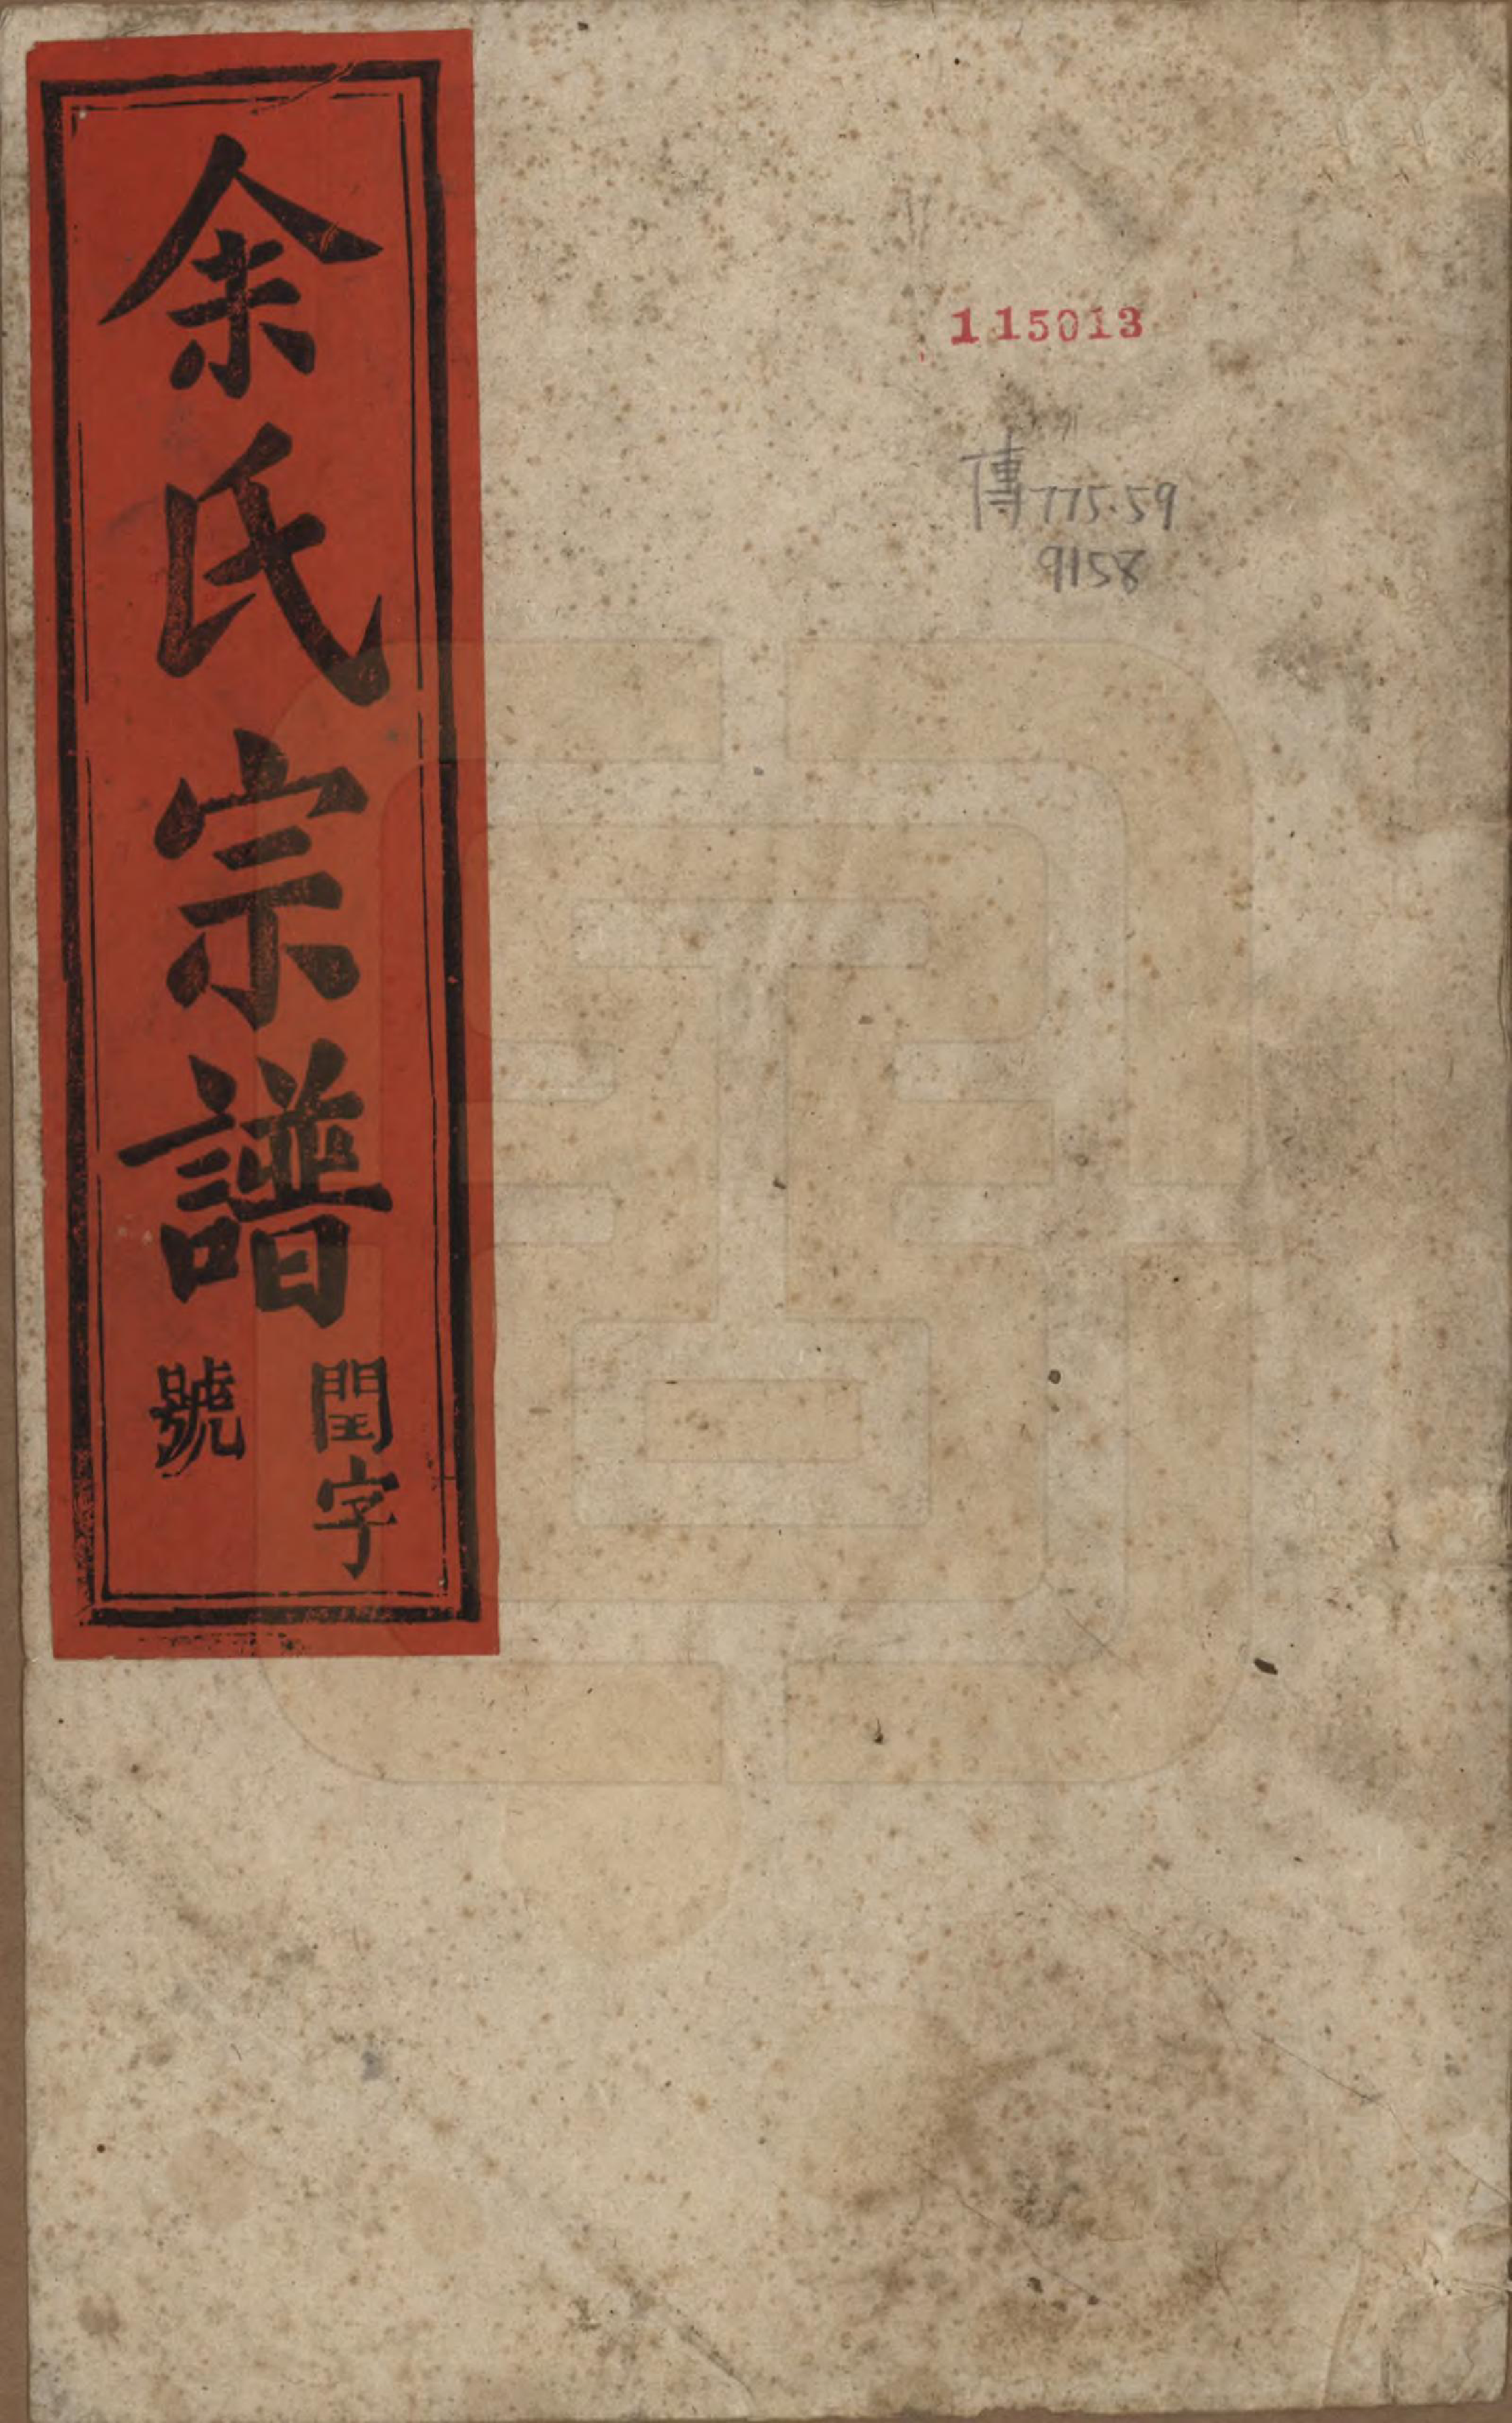 余氏宗譜
閏字
號
115013
傳775.59
9158